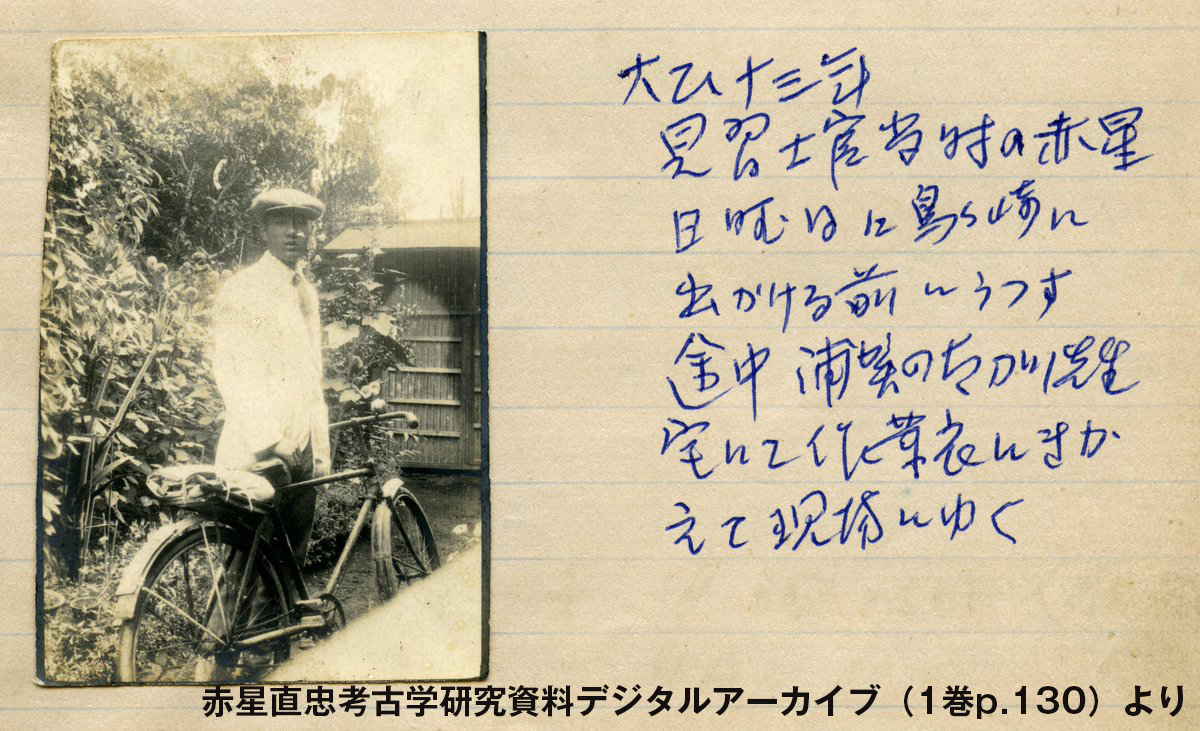 大正十三年
見習士官当時の赤星
日曜日に鳥ヶ崎に
出かける前にうつす
途中 浦賀の古川先生
宅にて作業衣にきか
えて現場にゆく
赤星直忠考古学研究資料デジタルアーカイブ（1巻p.130）より